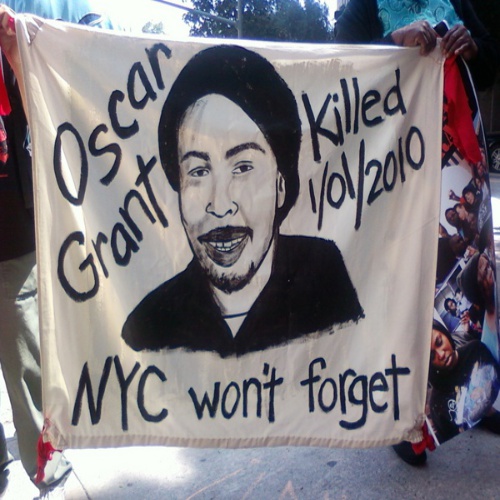 Oscar
Grant
Killed
1/01/2010
NYC won't forget